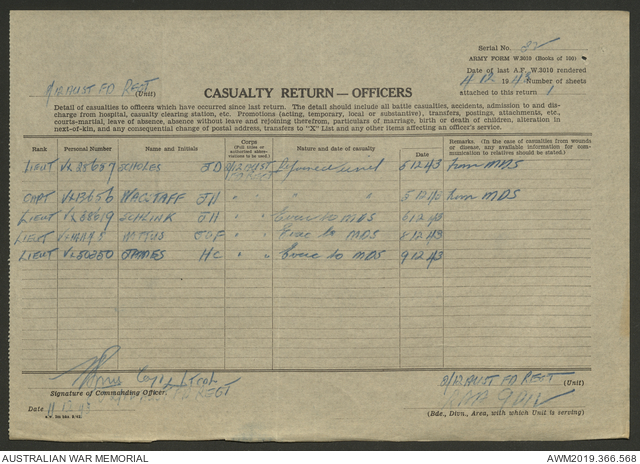 Serial No. 32
ARMY FORM W.3010 (Books of 100)
Date of last A.F. W.3010 rendered
4 12 1943 Number of sheets
attached to this return 1
AUST FD REGT (Unit)
CASUALTY RETURN — OFFICERS
Detail of casualties to officers which have occurred since last return. The detail should include all battle casualties, accidents, admission to and dis-
charge from hospital, casualty clearing station, etc. Promotions (acting, temporary, local or substantive), transfers, postings, attachments, etc.,
courts-martial, leave of absence, absence without leave and rejoining therefrom, particulars of marriage, birth or death of children, alteration in
next-of-kin, and any consequential change of postal address, transfers to "X" List and any other items affecting an officer's service.
Rank Personal Number Name and Initials Corps Nature and date of casualty Date Remarks. (In the case of casualties from wounds or disease, any available information for communication to relatives should be stated.)
LIEUT SCHOLES JD Rejoined unit 5 12 43 from MDS
CAPT WAGSTAFF JH " " " " 5 12 43 from MDS
LIEUT SCHLINK JH " " Evac to MDS 6 12 43
LIEUT " " Evac to MDS 8 12 43
LIEUT VX50350 JAMES HC " " Evac to MDS 9 12 43
Lt Col
Signature of Commanding Officer.
FD REGT
Date 11
2/12 AUST FD REGT (Unit)
(Bde., Divn., Area, with which Unit is serving)
AUSTRALIAN WAR MEMORIAL
AWM2019.366.568